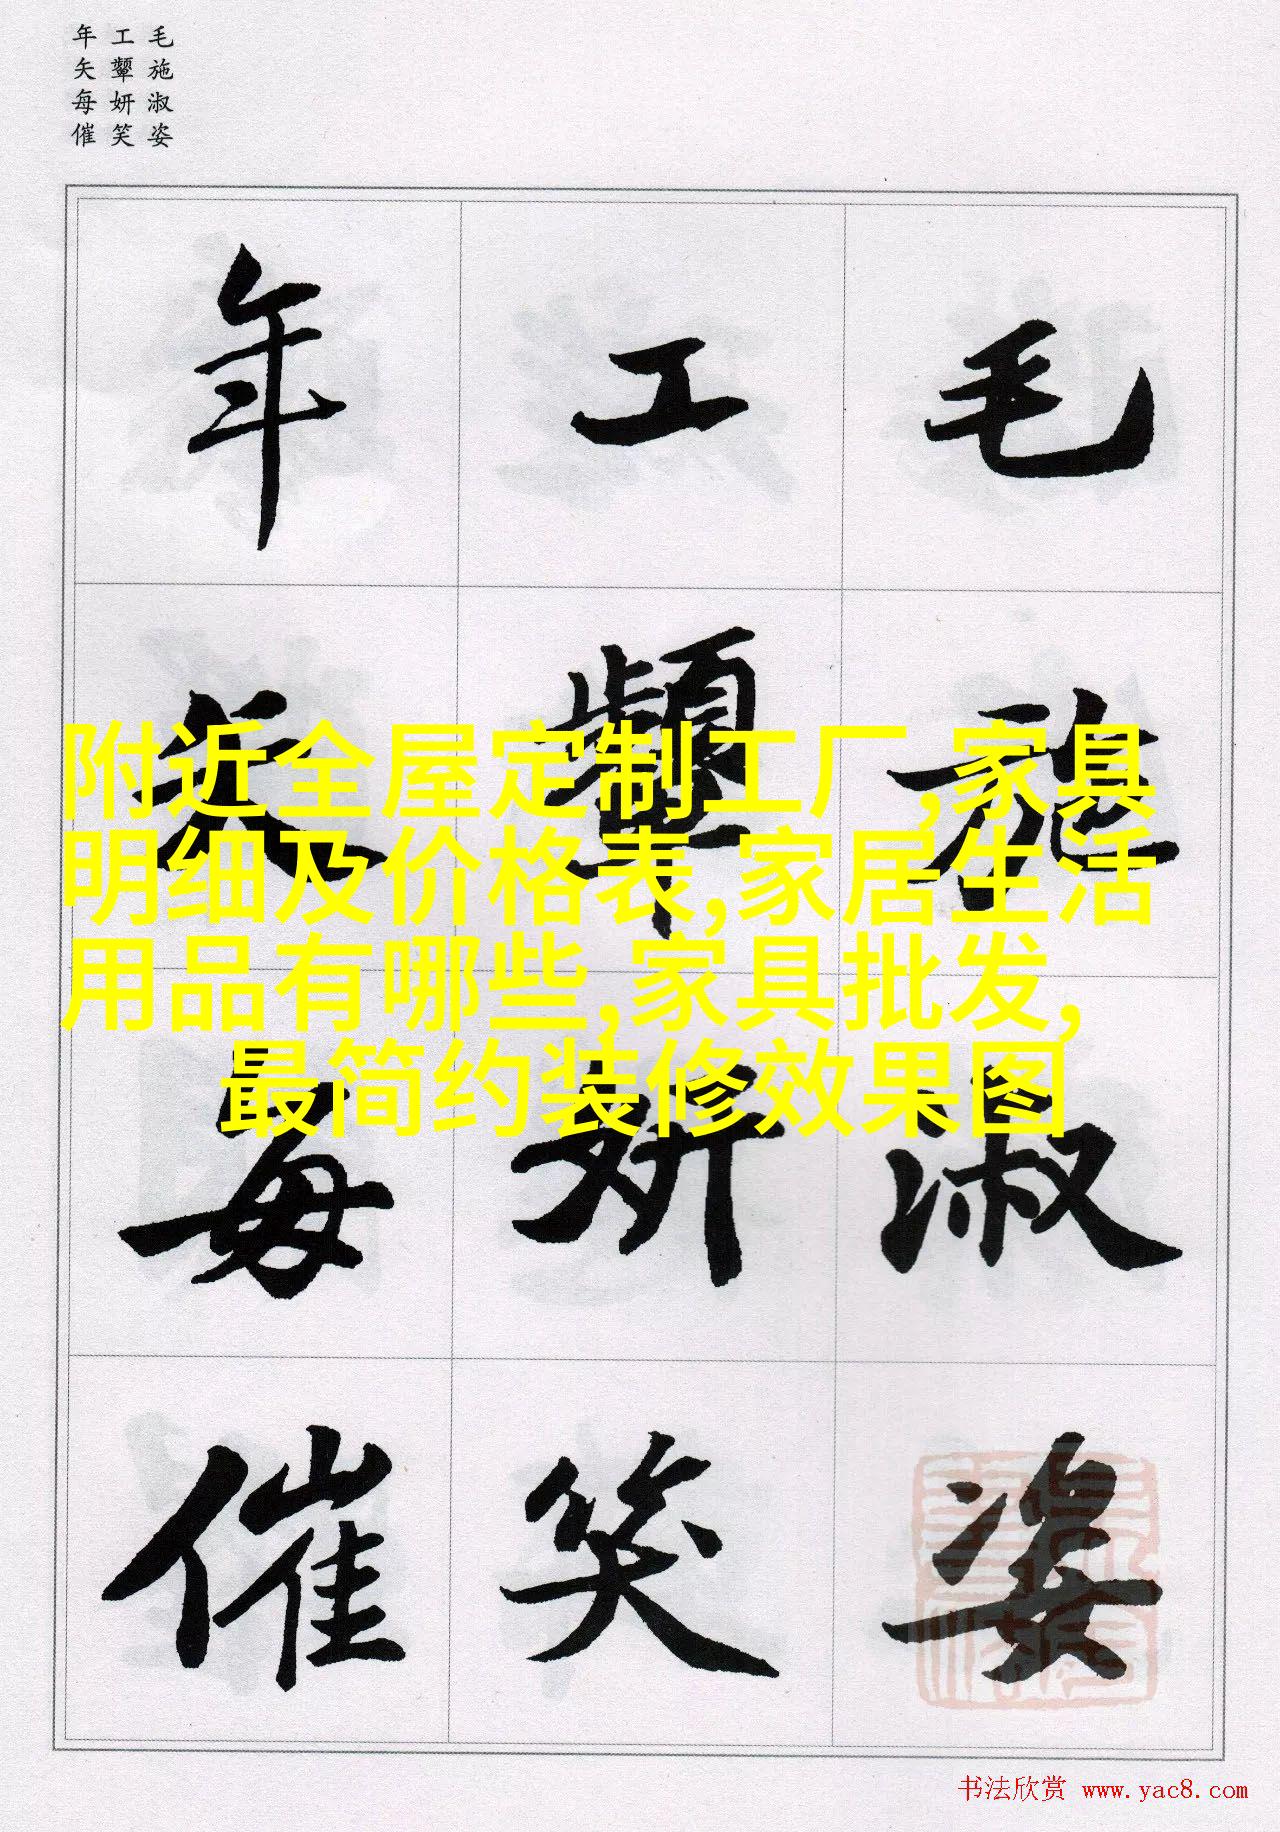 毛施淑姿
工颦妍笑
年矢每催
毛施淑姿
工颦妍笑
年矢每催
附近全屋定制工厂,家具
明细及价格表,家居生活
用品有哪些,家具批发,
最简约装修效果图
书法欣赏 www.yac8.com